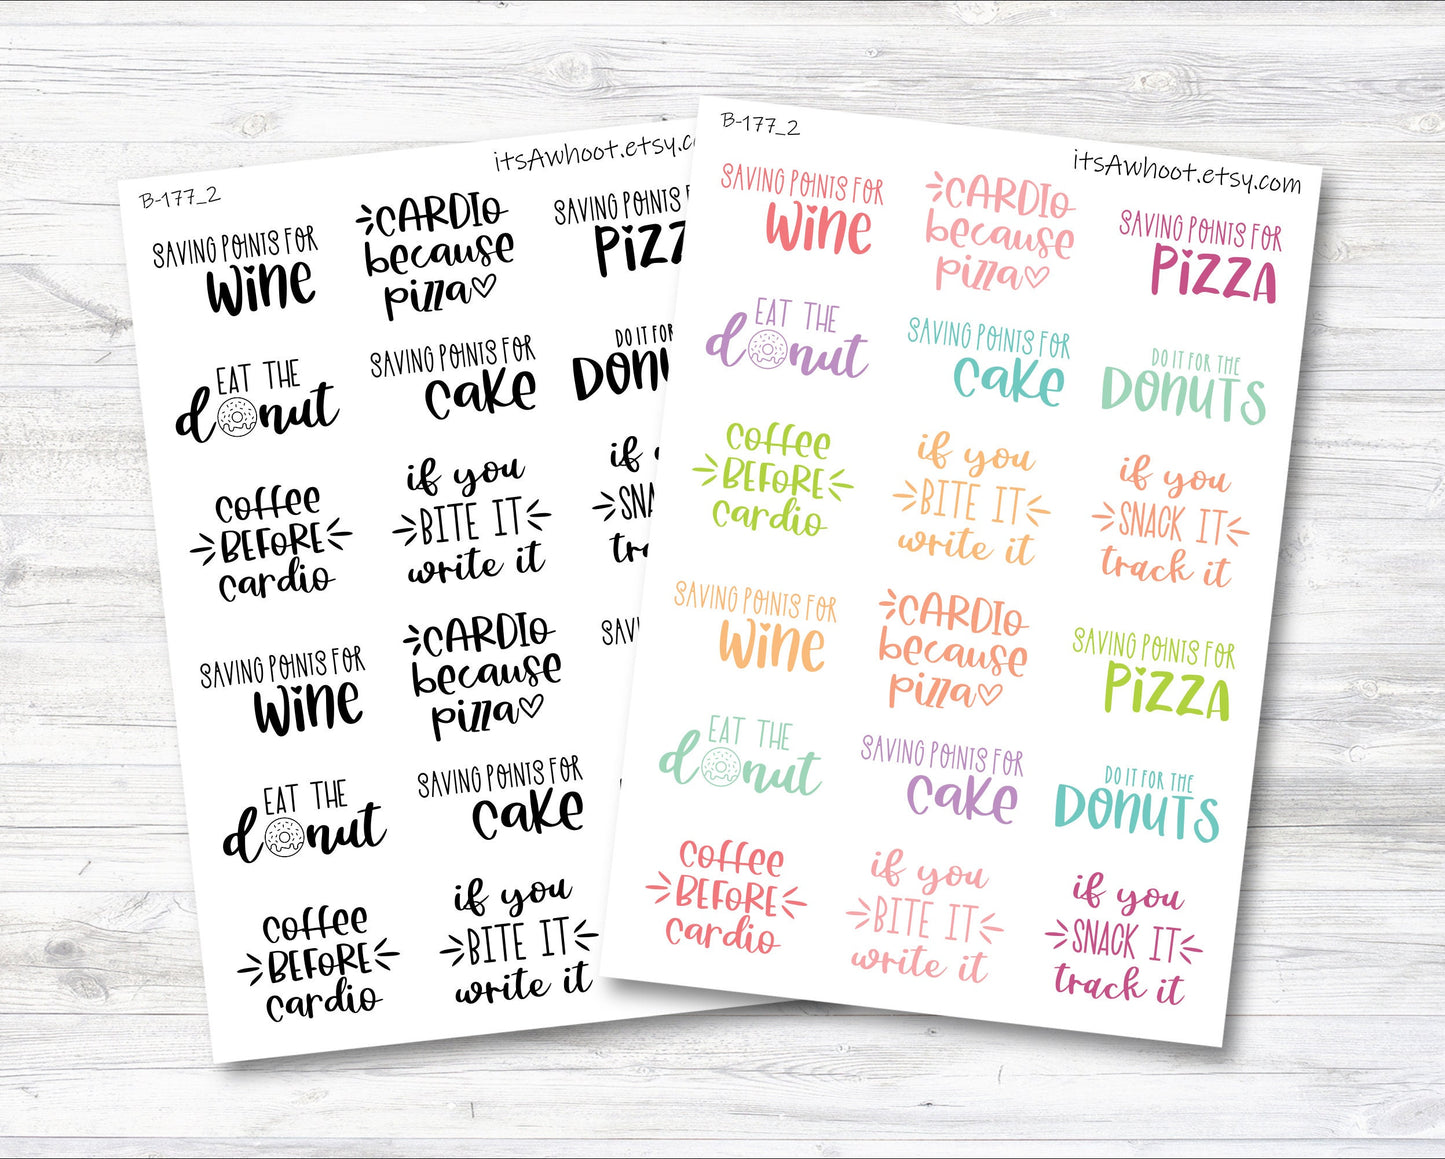 B-177_2
itsAwhoot.etsy.c
SAVING POINTS FOR
Wine
CARDIO
because
pizza
SAVING POINTS F
PiZZ
EAT THE
donut
SAVING POINTS FOR
Cake
DO IT FOR
DONU
coffee
BEFORE
cardio
if you
BITE IT
write it
if
SNA
tra
SAVING POINTS FOR
Wine
CARDIO
because
pizza
SAVI
EAT THE
donut
SAVING POINTS FOR
Cake
coffee
BEFORE
cardio
if you
BITE IT
write it
B-177_2
itsAwhoot.etsy.com
SAVING POINTS FOR
Wine
CARDIO
because
pizza
SAVING POINTS FOR
PiZZA
EAT THE
donut
SAVING POINTS FOR
Cake
DO IT FOR THE
DONUTS
coffee
BEFORE
cardio
if you
BITE IT
write it
if you
SNACK IT
track it
SAVING POINTS FOR
Wine
CARDIO
because
pizza
SAVING POINTS FOR
PiZZA
EAT THE
donut
SAVING POINTS FOR
Cake
DO IT FOR THE
DONUTS
coffee
BEFORE
cardio
if you
BITE IT
write it
if you
SNACK IT
track it